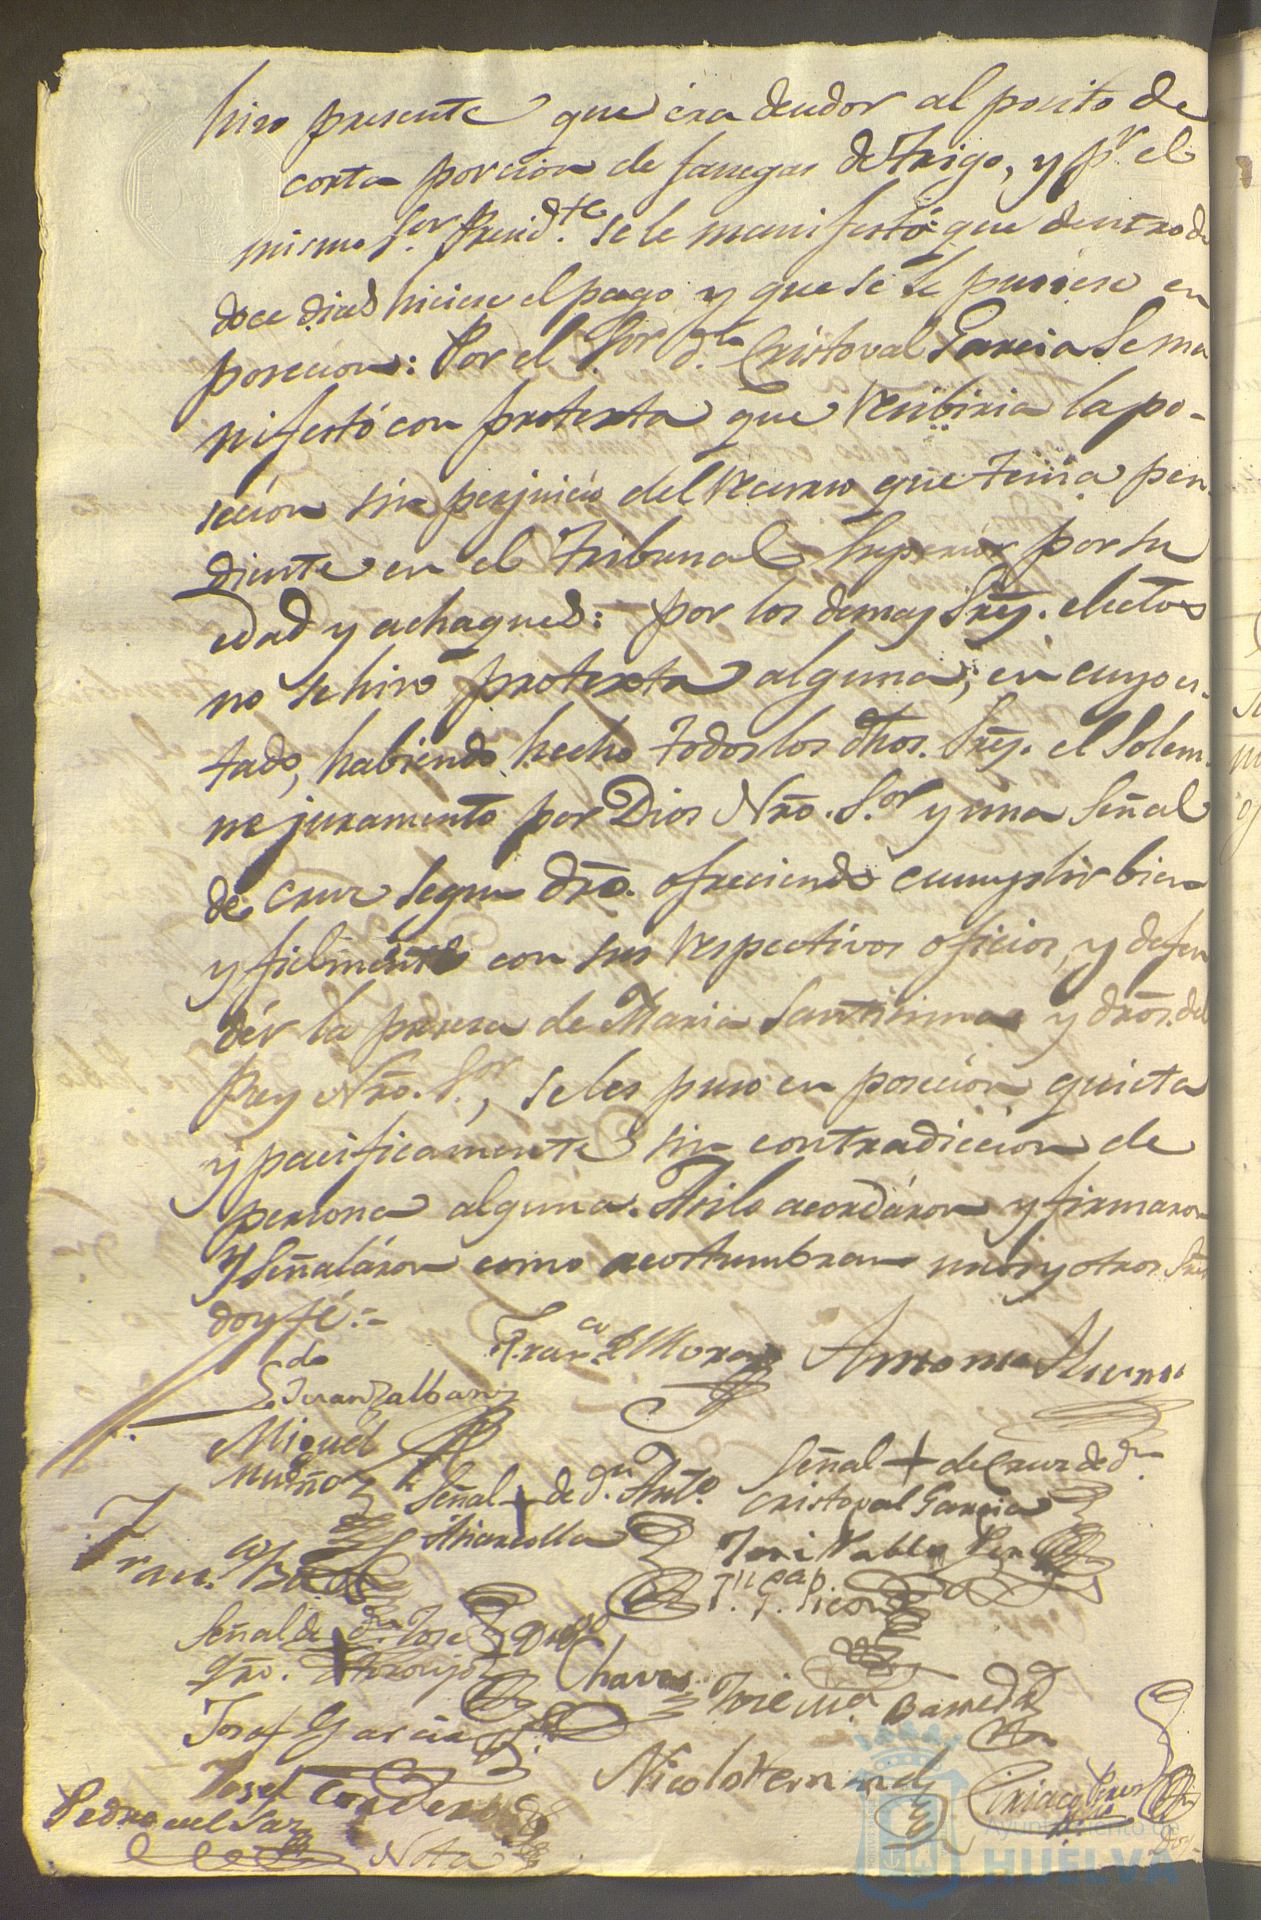 hizo presente que éra deudor al posito de
corta porcion de fanegas de trigo, y pr. el
mismo Sor. Presidte. se le manifestó que dentro de
doce dias hiciese el pago y que se le pusiese en
poseción: Por el Sor. dn. Cristoval Garcia Se ma
nifestó con protexta que recibiria la po-
seción sin perjuicio del recurso que tenia pen
diente en el tribunal Superior por su
edad y achaques: por los demas Sres. electos
no se hizo protexta alguna; en cuyo es-
tado, habiendo hecho todos los dhos. Sres. el Solem-
ne juramento por Dios Nro. Sor. y una Señal
de cruz segun dro. ofreciendo cumplir bien
y fielmente con sus respectivos oficios, y defen
dér la pureza de Maria Santisima y dros. del
Rey Nro. Sor., se les puso en poseción quieta
y pacificamente sin contradiccion de
persona alguna. Asi lo acordáron y firmaron
y Señaláron como acostumbran unos y otros Sres.
doy fé:-
Franco. de Mora Antonio
Ldo. Juan
Miguel
Muñoz
Señal + de dn. Anto.
Señal + de Cruz de dn.
Cristoval Garcia
Franco.
José Pablo
Picon
Señal de dn. Jose
Diego
Chaves
José Ma. Barreda
Josef Garcia
Josef Cordero
Nicolas Hernandez
Ciriaco Perez
Pedro del Saz
Nota
Ayuntamiento de
HUELVA